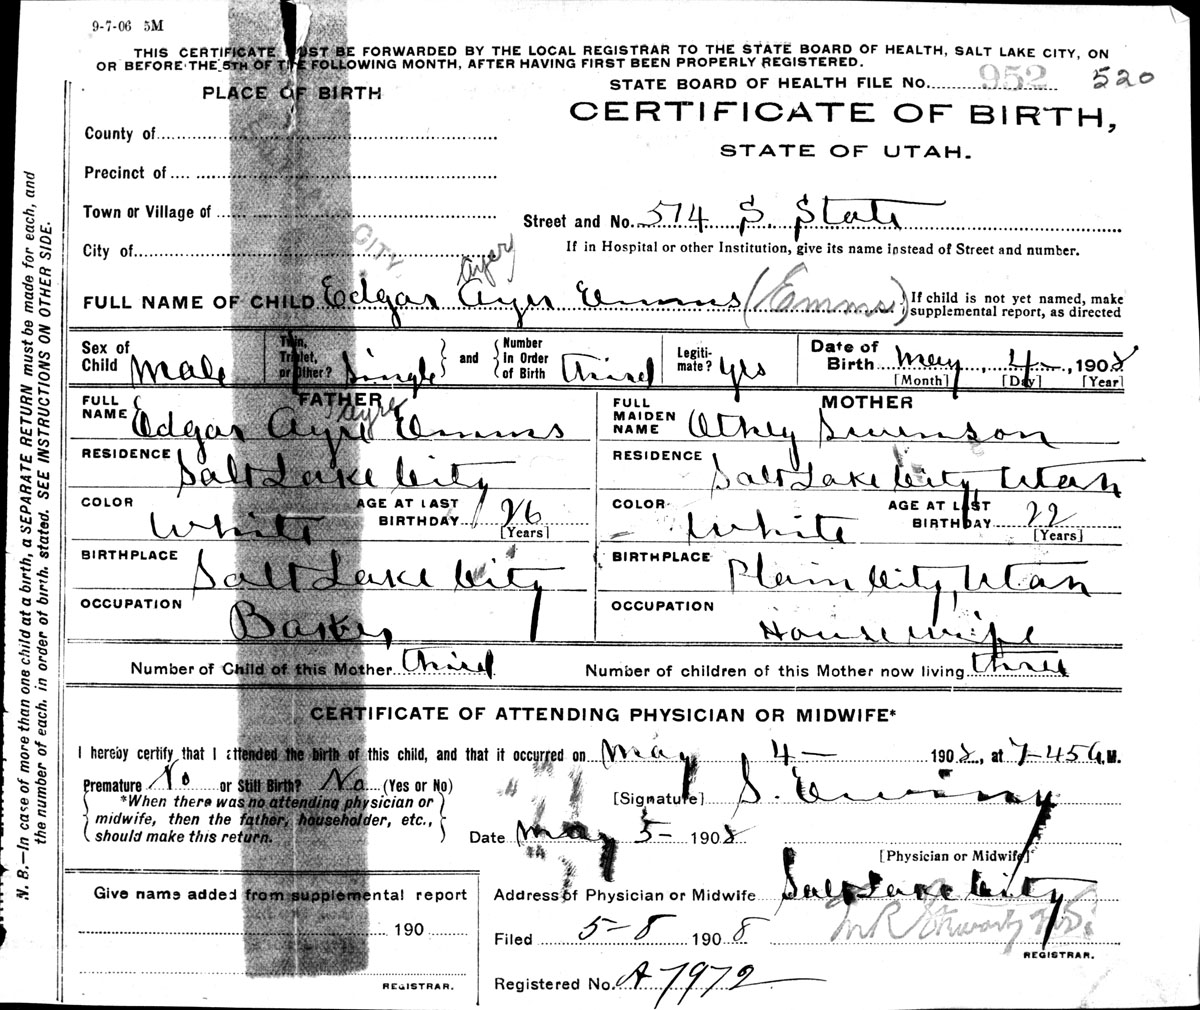 9-7-06 5M
THIS CERTIFICATE MUST BE FORWARDED BY THE LOCAL REGISTRAR TO THE STATE BOARD OF HEALTH, SALT LAKE CITY, ON
OR BEFORE THE 5TH OF THE FOLLOWING MONTH, AFTER HAVING FIRST BEEN PROPERLY REGISTERED.
STATE BOARD OF HEALTH FILE No. 952 520
PLACE OF BIRTH
CERTIFICATE OF BIRTH,
STATE OF UTAH.
County of
Precinct of
Town or Village of
City of
CITY
Street and No. 574 S. State
If in Hospital or other Institution, give its name instead of Street and number.
Ayer
FULL NAME OF CHILD Edgar Ayer Emms (Emms) If child is not yet named, make
supplemental report, as directed
Sex of Child Male Twin, Triplet, or Other? Single and Number In Order of Birth third Legiti- mate? Yes Date of Birth May 4-, 1908
[Month] [Day] [Year]
FATHER
Ayre
FULL NAME Edgar Ayre Emms
RESIDENCE Salt Lake City
COLOR White AGE AT LAST BIRTHDAY 26 [Years]
BIRTHPLACE Salt Lake City
OCCUPATION
MOTHER
FULL MAIDEN NAME Swenson
RESIDENCE Salt Lake City, Utah
COLOR White AGE AT LAST BIRTHDAY 22 [Years]
BIRTHPLACE Plain City, Utah
OCCUPATION House wife
Number of Child of this Mother third Number of children of this Mother now living three
CERTIFICATE OF ATTENDING PHYSICIAN OR MIDWIFE*
I hereby certify that I attended the birth of this child, and that it occurred on May 4- 1908, at 7-45 A.M.
Premature No or Still Birth? No (Yes or No)
*When there was no attending physician or
midwife, then the father, householder, etc.,
should make this return.
[Signature] S.
Date May 5- 1908
[Physician or Midwife]
Give name added from supplemental report
190
REGISTRAR.
Address of Physician or Midwife Salt Lake City
Filed 5-8 1908
REGISTRAR.
Registered No. A 7972
N. B.—In case of more than one child at a birth, a SEPARATE RETURN must be made for each, and
the number of each, in order of birth, stated. SEE INSTRUCTIONS ON OTHER SIDE.